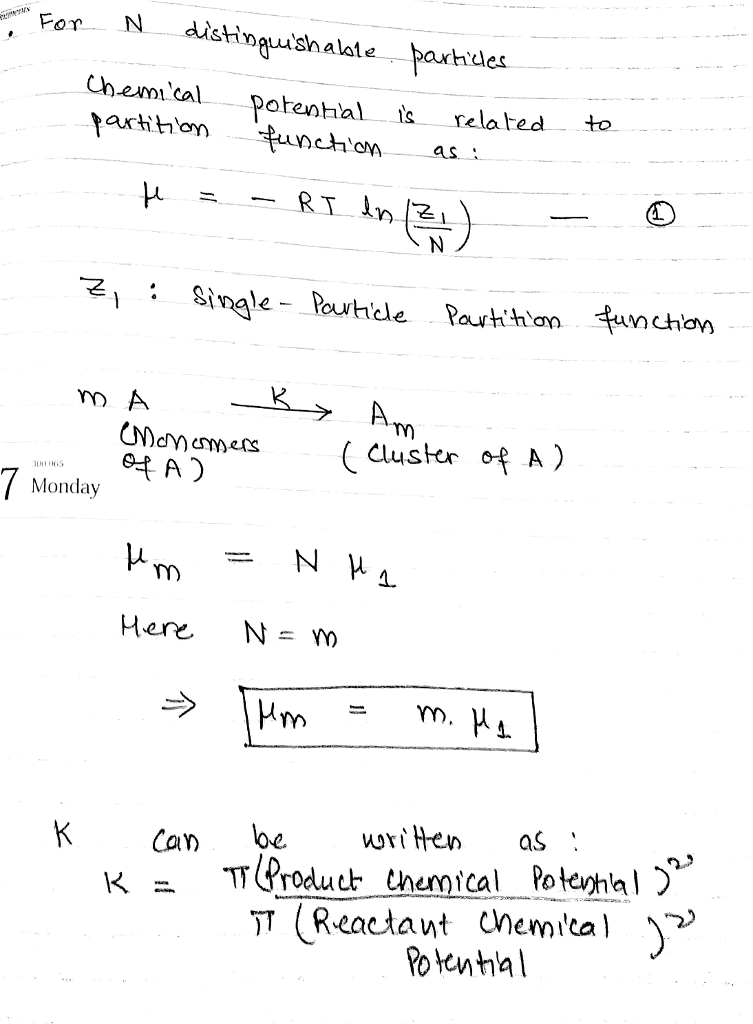 For N distinguishable particles
Chemical potential is related to
partition function as :
μ = - RT ln (Z₁/N) — ①
Z₁ : Single - Particle Partition function
m A —K→ Am
(Monomers of A) (Cluster of A)
7 Monday
μm = N μ1
Here N = m
⇒ μm = m. μ1
K can be written as :
K = π(Product Chemical Potential)^ν
π (Reactant Chemical Potential)^ν